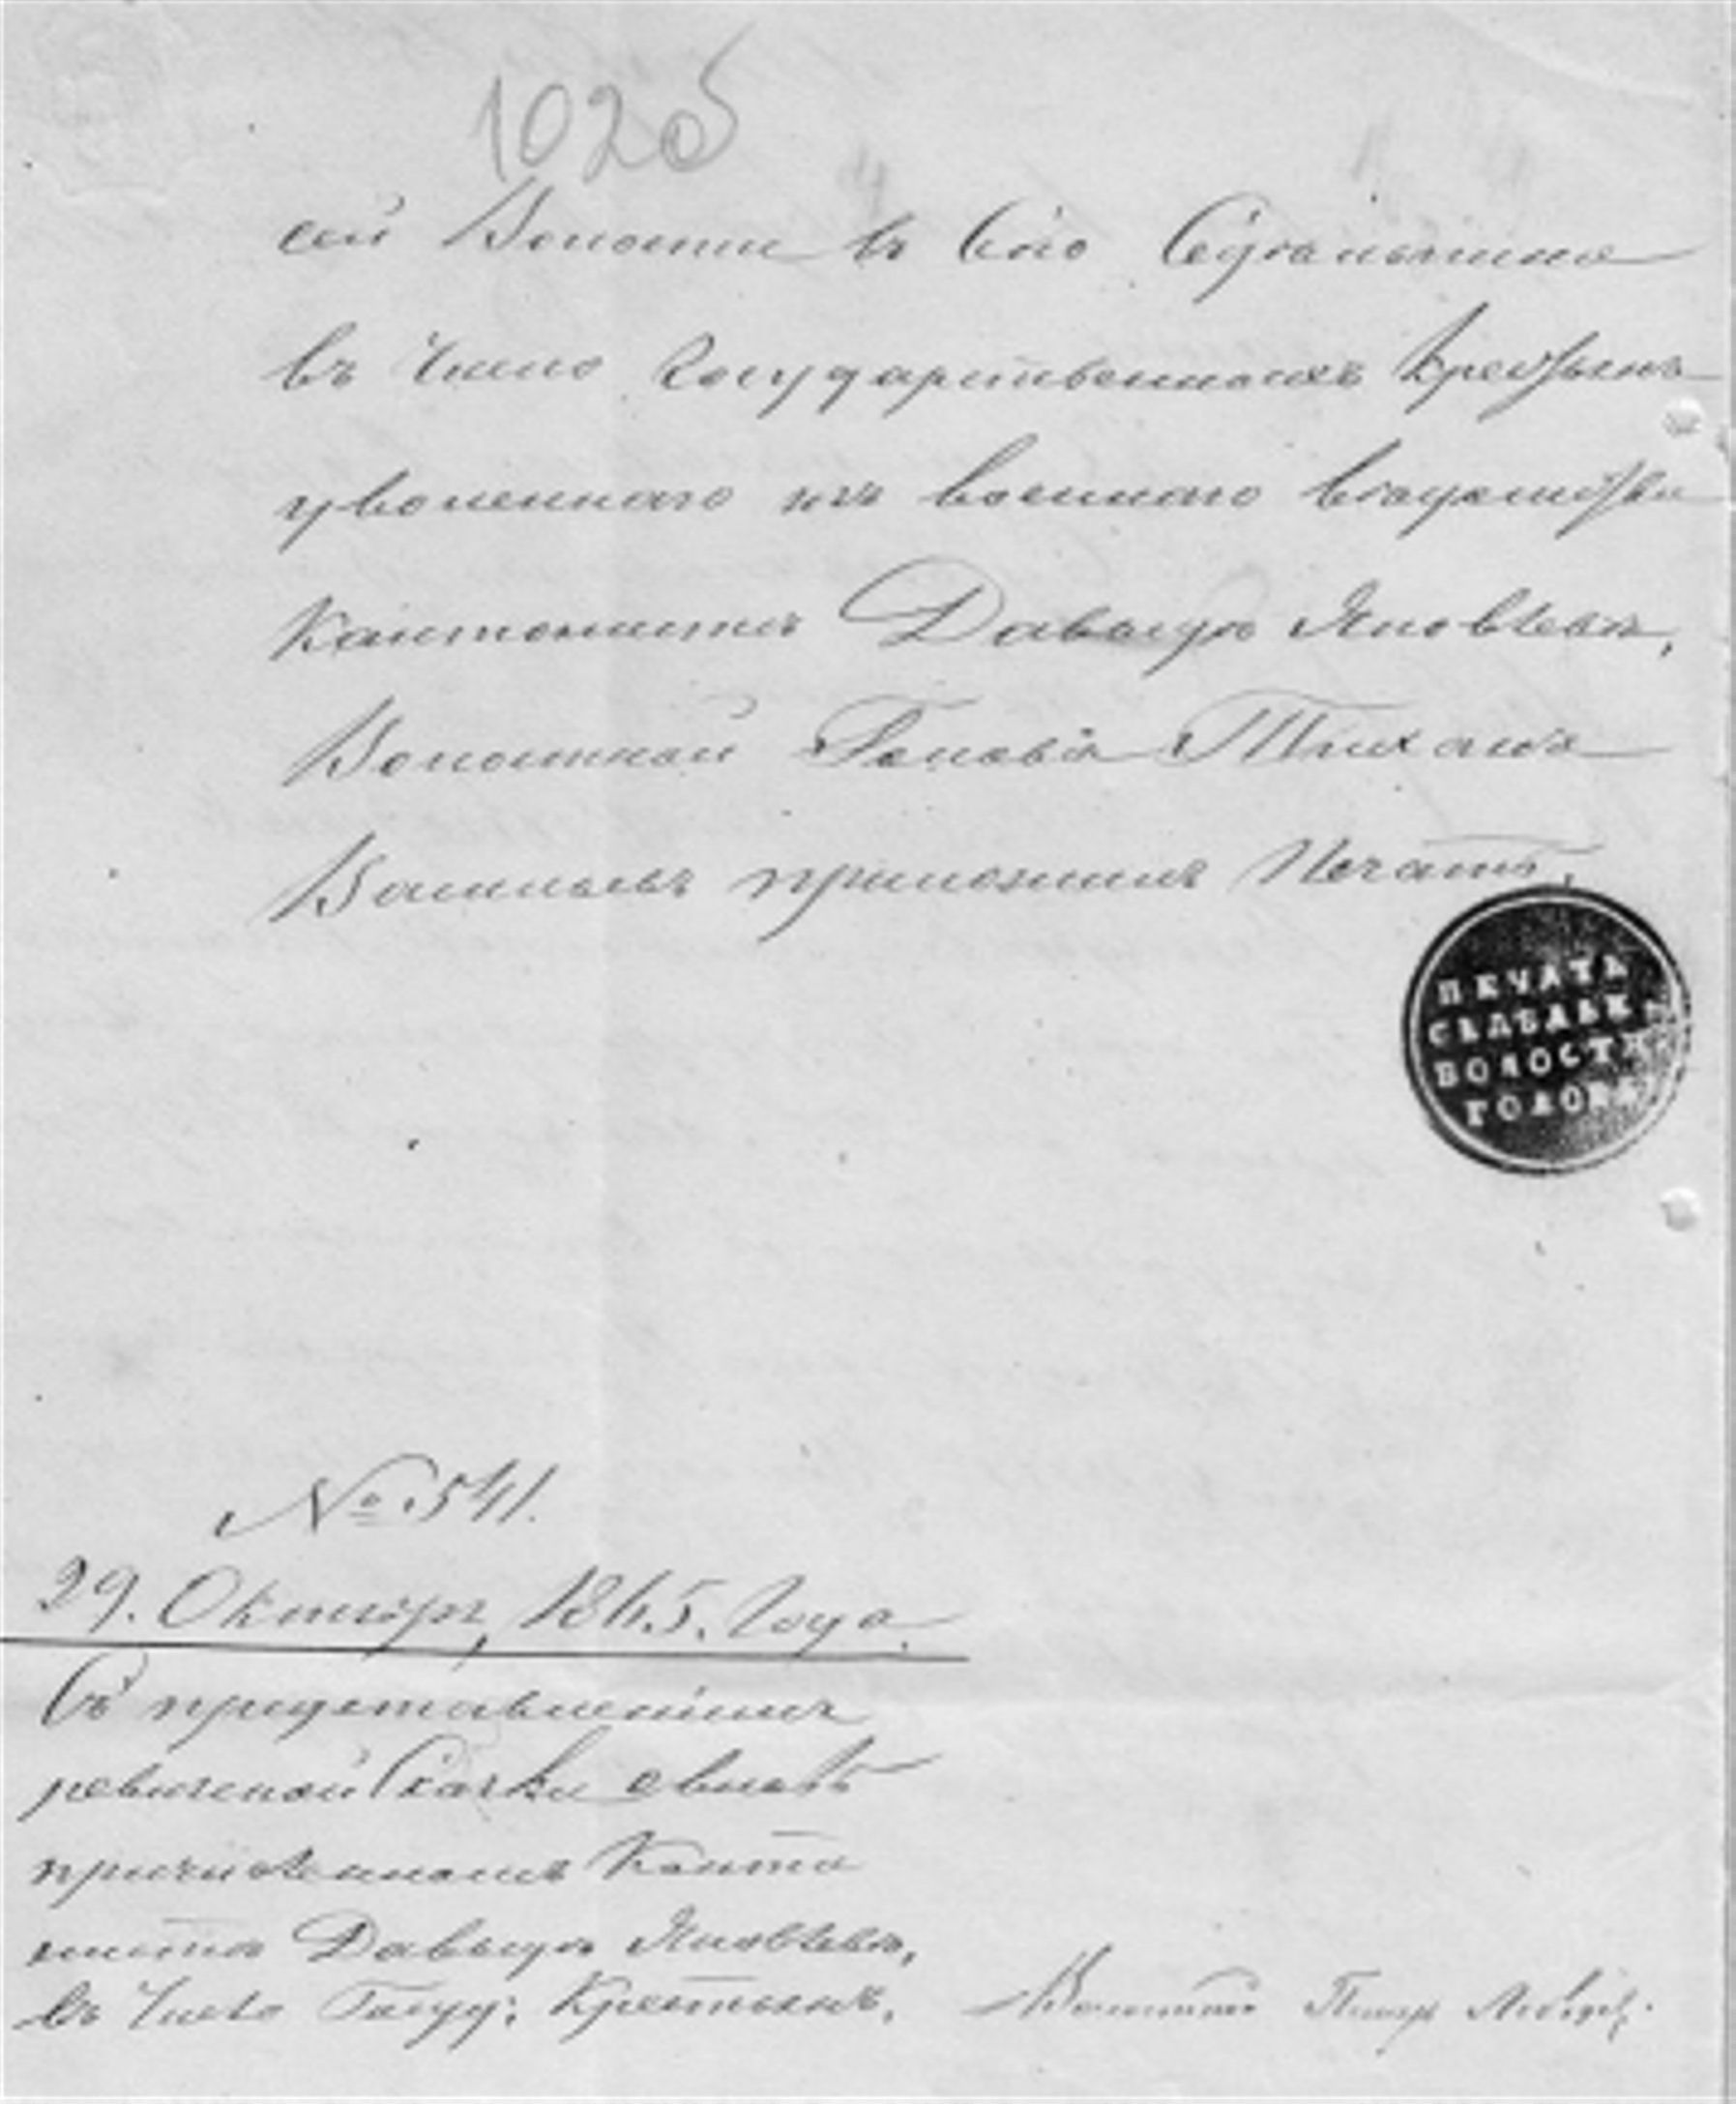 102об
сей Волости въ Село
въ Число Государственныхъ Крестьянъ
уволеннаго изъ военнаго вѣдомства
Кантониста Давыда Яковлева,
Волостной Голова Тихонъ
Васильевъ приложилъ Печать.
ПЕЧАТЬ
ВОЛОСТН
ГОЛОВЫ
№ 541.
29. Октября, 1865. Года.
Съ представленіемъ
ревизской Сказки о вновь
причисленномъ Канто
нистѣ Давыдѣ Яковлевѣ,
въ Число Госуд: Крестьянъ.
Волостной Писарь